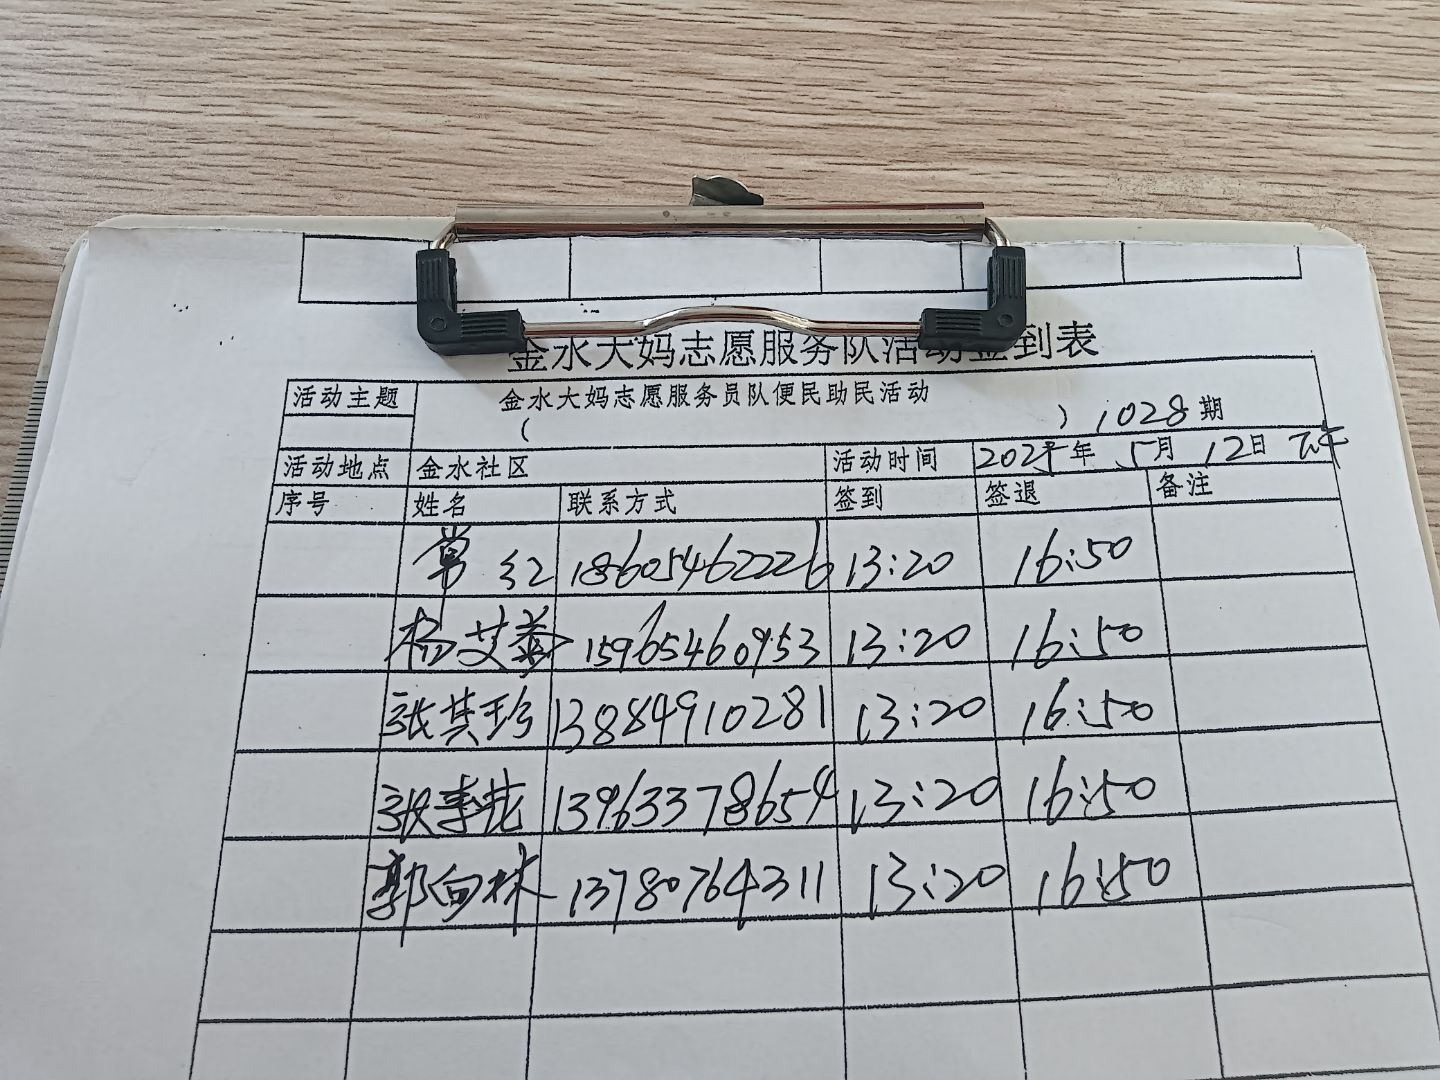 金水大妈志愿服务队活动签到表
活动主题 金水大妈志愿服务员队便民助民活动
( ) 1028期
活动地点 金水社区 活动时间 年 5月 12日 下午
序号 姓名 联系方式 签到 签退 备注
常红 18605462226 13:20 16:50
杨艾 15965460953 13:20 16:50
张其珍 13884910281 13:20 16:50
张 花 13963378654 13:20 16:50
郭向林 13780764311 13:20 16:50